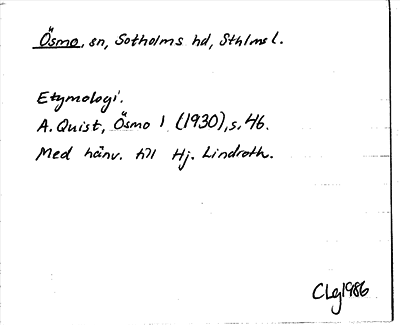 Ösmo, sn, Sotholms hd, Sthlms l.
Etymologi.
A. Quist, Ösmo 1 (1930), s. 46.
Med hänv. till Hj. Lindroth.
CLg1986